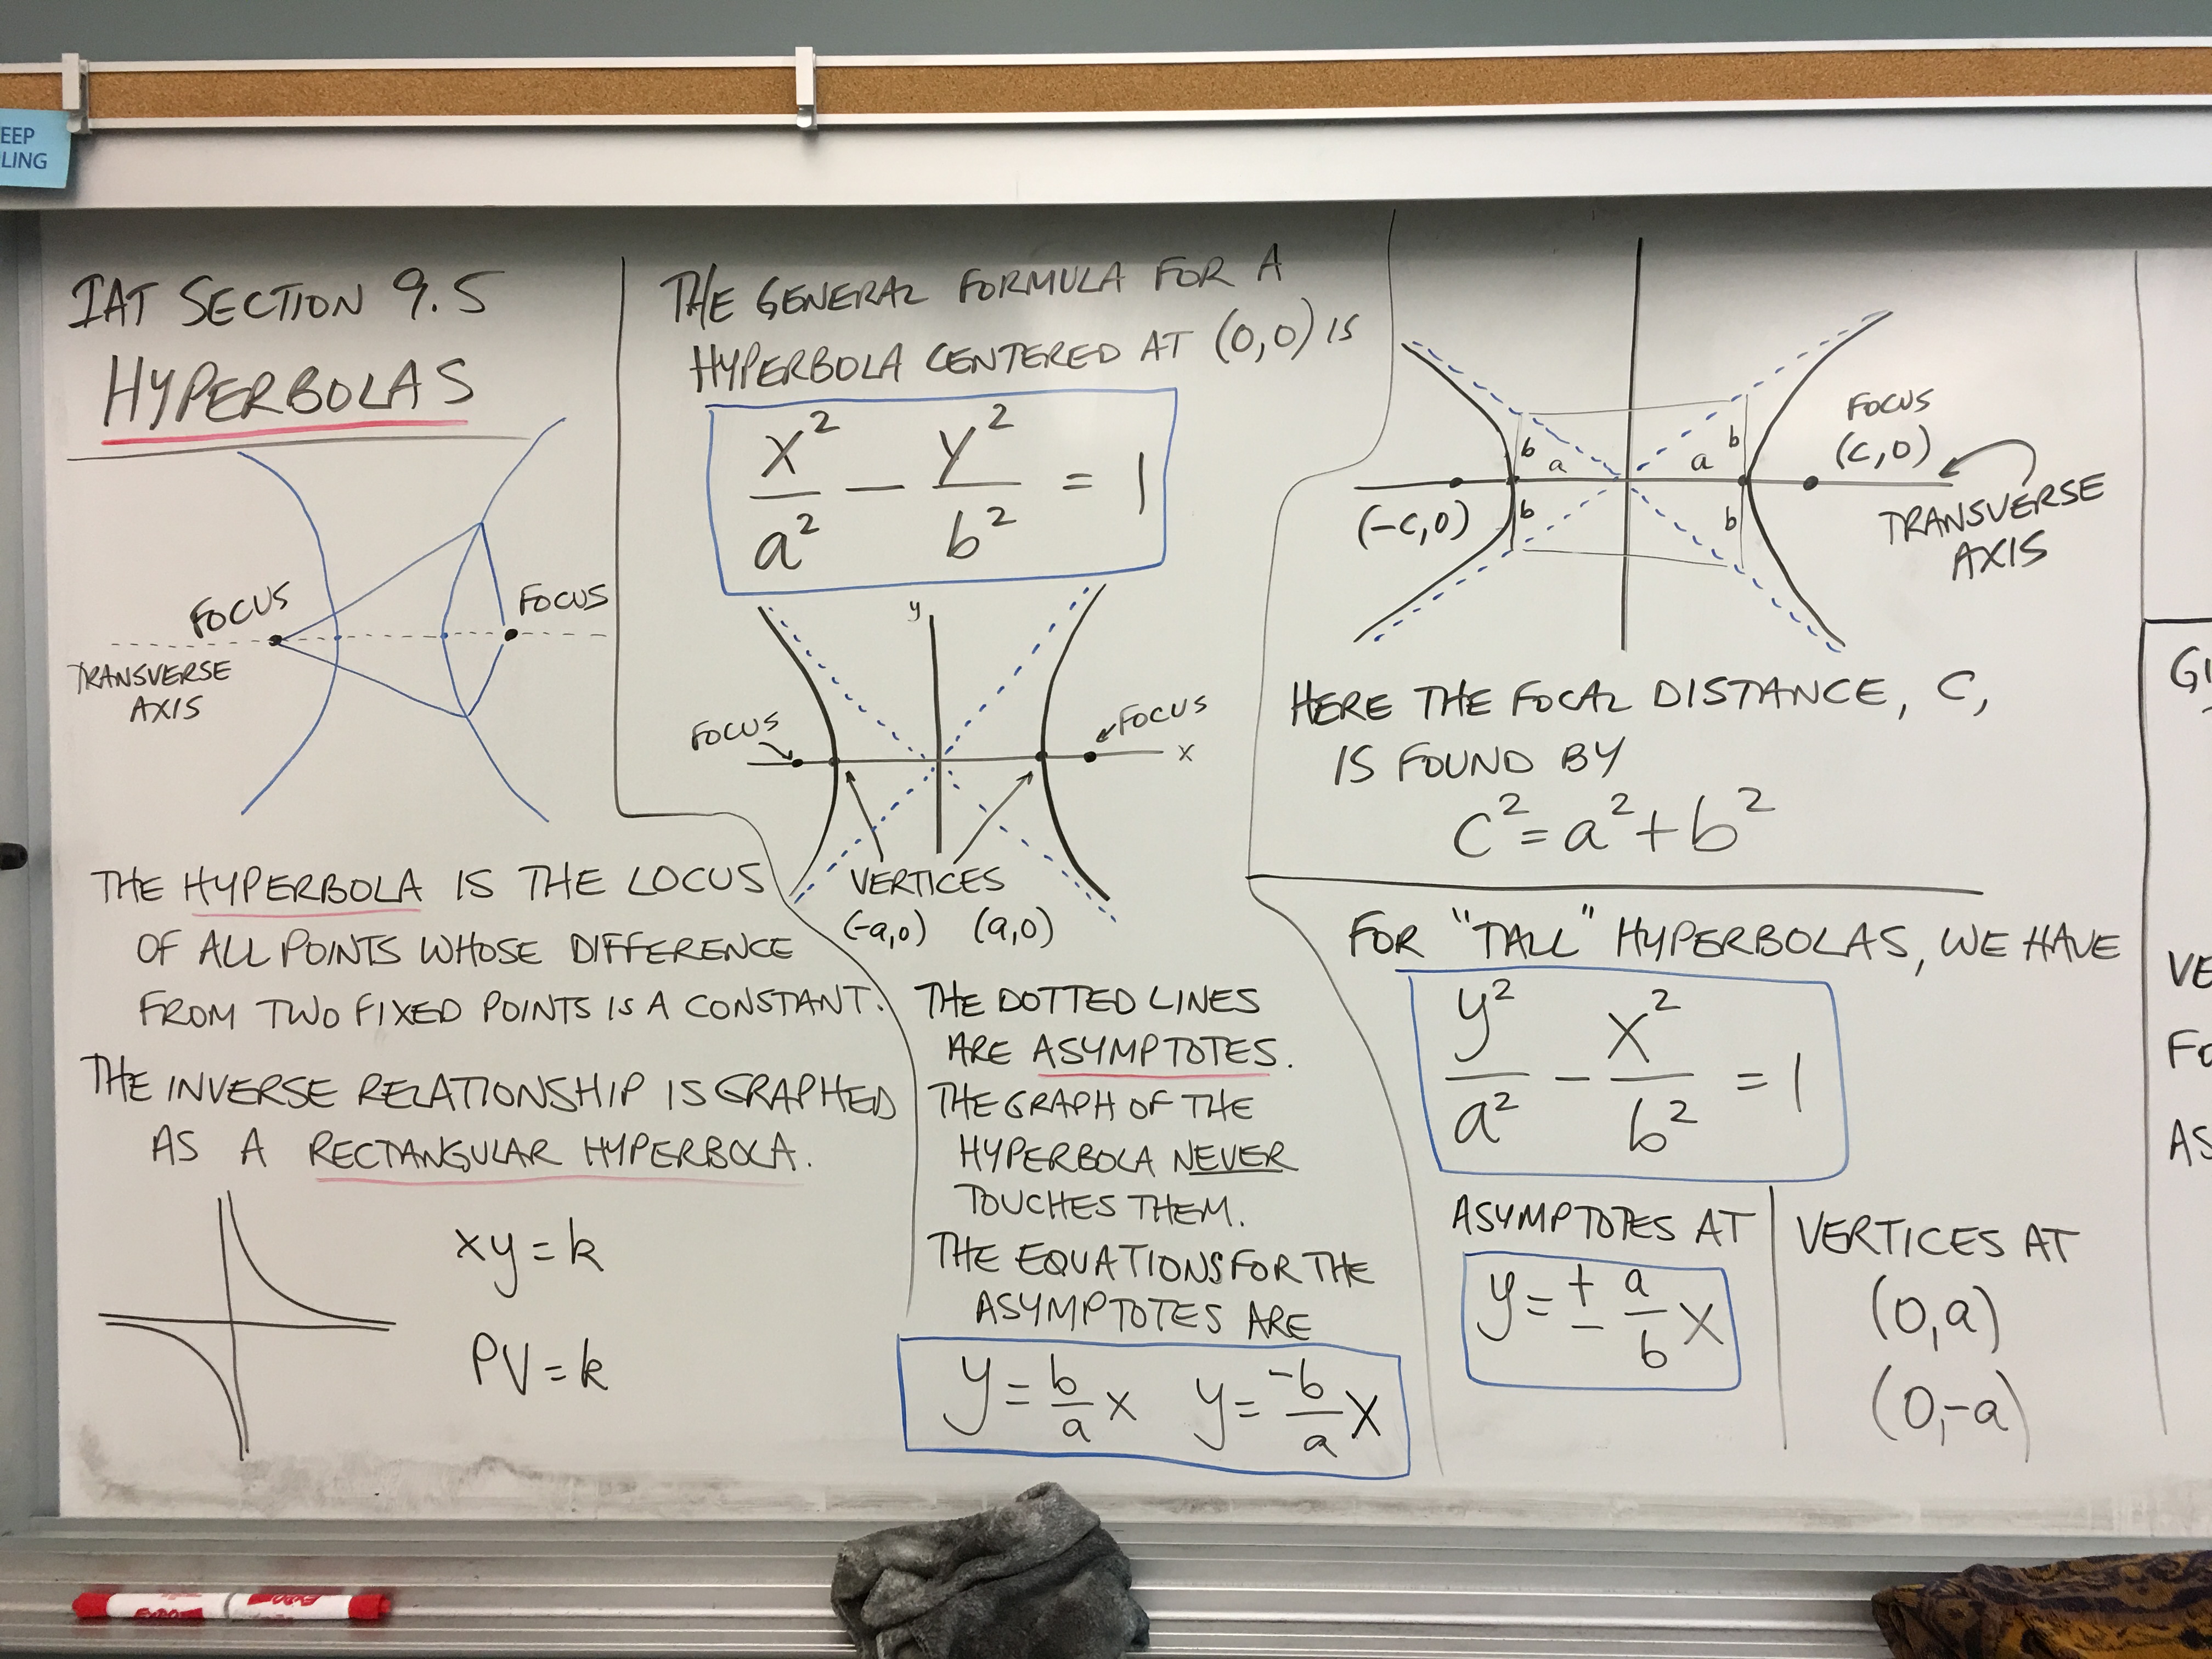 EEP
LING
IAT SECTION 9.5
HYPERBOLAS
FOCUS
FOCUS
TRANSVERSE
AXIS
THE HYPERBOLA IS THE LOCUS
OF ALL POINTS WHOSE DIFFERENCE
FROM TWO FIXED POINTS IS A CONSTANT.
THE INVERSE RELATIONSHIP IS GRAPHED
AS A RECTANGULAR HYPERBOLA.
xy = k
PV = k
THE GENERAL FORMULA FOR A
HYPERBOLA CENTERED AT (0,0) IS
x²/a² − y²/b² = 1
y
FOCUS
FOCUS
x
VERTICES
(-a,0) (a,0)
THE DOTTED LINES
ARE ASYMPTOTES.
THE GRAPH OF THE
HYPERBOLA NEVER
TOUCHES THEM.
THE EQUATIONS FOR THE
ASYMPTOTES ARE
y = b/a x y = -b/a x
FOCUS
(c,0)
b a a b
(-c,0) b b
TRANSVERSE
AXIS
HERE THE FOCAL DISTANCE, C,
IS FOUND BY
c² = a² + b²
FOR "TALL" HYPERBOLAS, WE HAVE
y²/a² − x²/b² = 1
ASYMPTOTES AT
y = ± a/b x
VERTICES AT
(0,a)
(0,-a)
VE
FO
AS
EXPO
EXPO